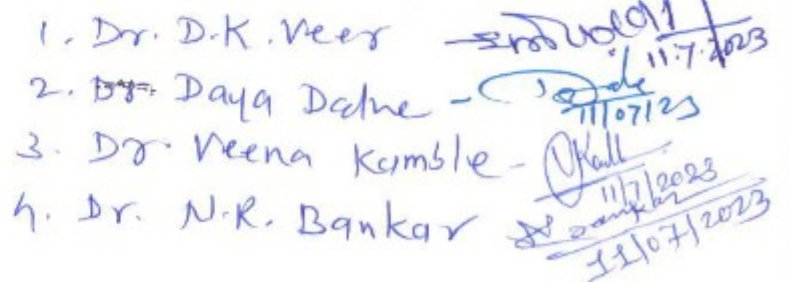 1. Dr. D.K. Veer 11.7.2023
2. Daya Datne - 11/07/23
3. Dr Veena Kamble - 11/7/2023
4. Dr. N.R. Bankar 11/07/2023